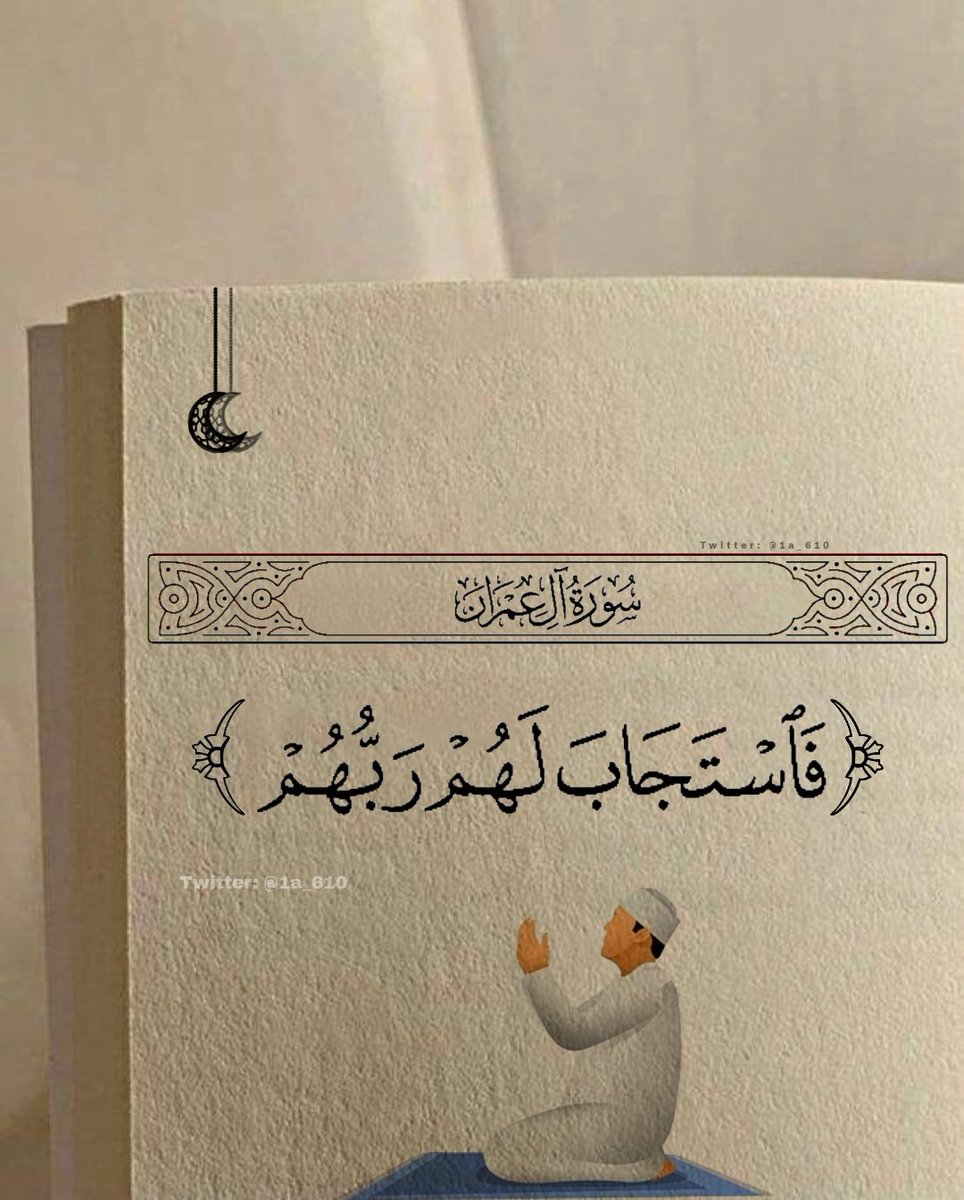 Twitter: @1a_610
سُورَةُ آلِ عِمْرَانَ
﴿فَٱسْتَجَابَ لَهُمْ رَبُّهُمْ﴾
Twitter: @1a_610